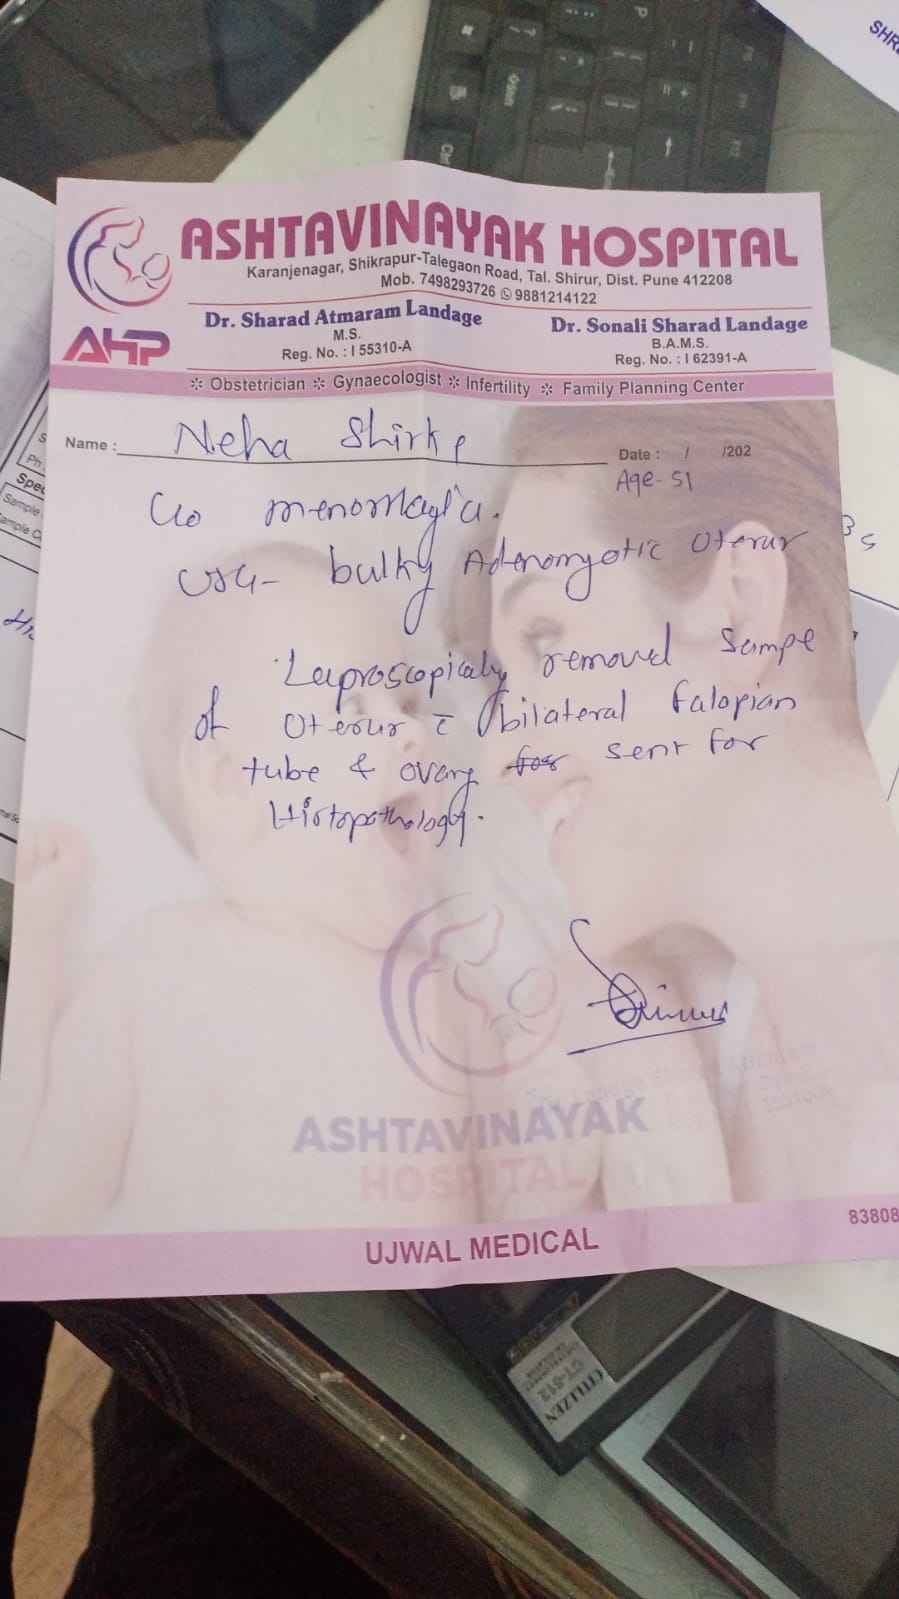 SHR
ASHTAVINAYAK HOSPITAL
Karanjenagar, Shikrapur-Talegaon Road, Tal. Shirur, Dist. Pune 412208
Mob. 7498293726 9881214122
AHP
Dr. Sharad Atmaram Landage
M.S.
Reg. No. : I 55310-A
Dr. Sonali Sharad Landage
B.A.M.S.
Reg. No. : I 62391-A
❇ Obstetrician ❇ Gynaecologist ❇ Infertility ❇ Family Planning Center
Name : Neha Shirke
Date : / /202
Age- 51
C/o menorrhagia.
USG- bulky Adenomyotic Uterus
Laproscopically removed Sample
of Uterus c̄ bilateral falopian
tube & ovary for sent for
Histopathology.
ASHTAVINAYAK
HOSPITAL
UJWAL MEDICAL
83808
CITIZEN
CT-512